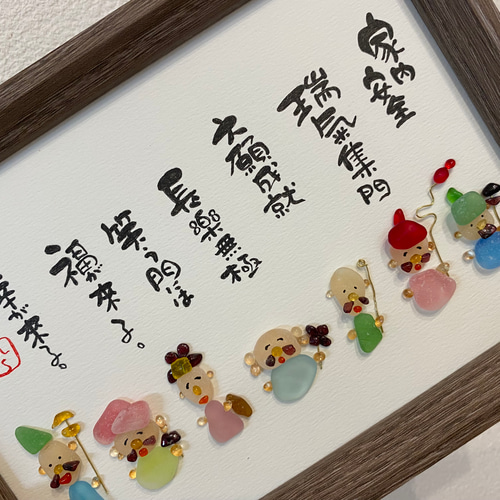 家内安全
瑞氣集門
大願成就
長樂無極
笑う門には
福が来る。
が來る。